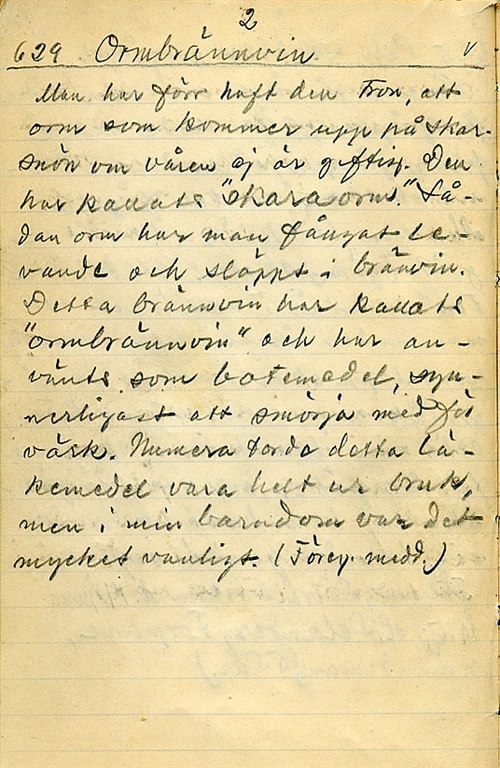 2
629 Ormbrännvin v
Man har förr haft den Tron, att
orm som kommer upp på skar-
snön om våren ej är giftig. Den
har kallats "skaraorm." Så-
dan orm har man fångat le-
vande och släppt i bränvin.
Detta brännvin har kallats
"ormbrännvin" och har an-
vänts som botemedel, syn-
nerligast att smörja med för
värk. Numera torde detta lä-
kemedel vara helt ur bruk,
men i min barndom var det
mycket vanligt. (Föreg. medd.)